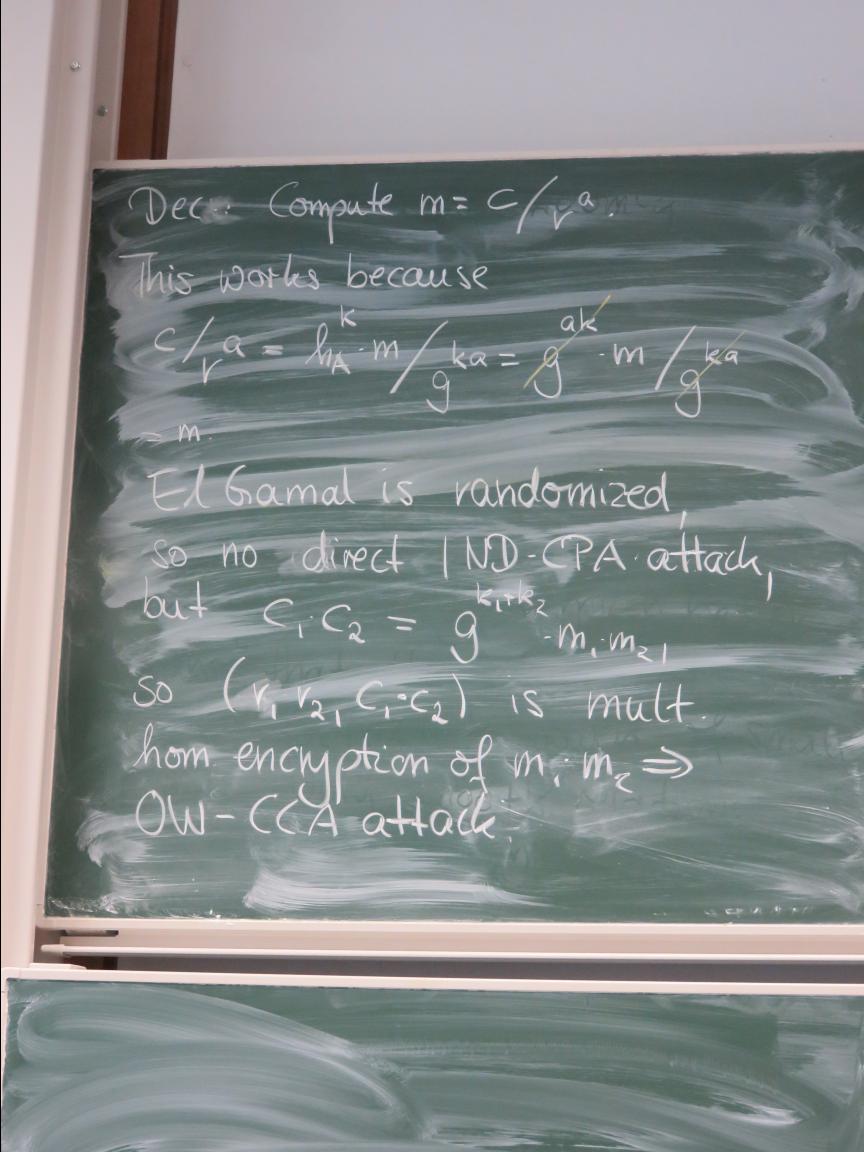 Dec: Compute m = c/r^a.
This works because
c/r^a = h_A^k·m/g^ka = g^ak·m/g^ka
= m.
ElGamal is randomized,
so no direct IND-CPA attack,
but c_1·c_2 = g^k_1+k_2·m_1·m_2,
so (r_1 r_2, c_1·c_2) is mult.
hom. encryption of m_1·m_2 ⇒
OW-CCA attack.